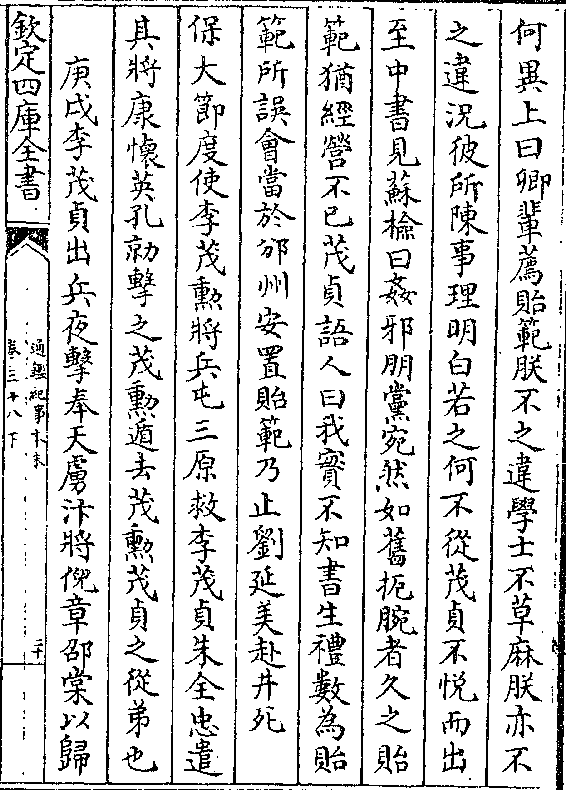 何異上曰卿輩薦貽範朕不之違學士不草麻朕亦不
之違況彼所陳事理明白若之何不從茂貞不悦而出
至中書見蘇檢曰姦邪朋黨宛然如舊扼腕者久之貽
範猶經營不已茂貞語人曰我實不知書生禮數為貽
範所誤會當於邠州安置貽範乃止劉延美赴井死
保大節度使李茂勲將兵屯三原救李茂貞朱全忠遣
其將康懷英孔勍擊之茂勲遁去茂勲茂貞之從弟也
庚戌李茂貞出兵夜擊奉天虜汴將倪章邵棠以歸
欽定四庫全書
通鑑紀事本末
卷三十八下
二十